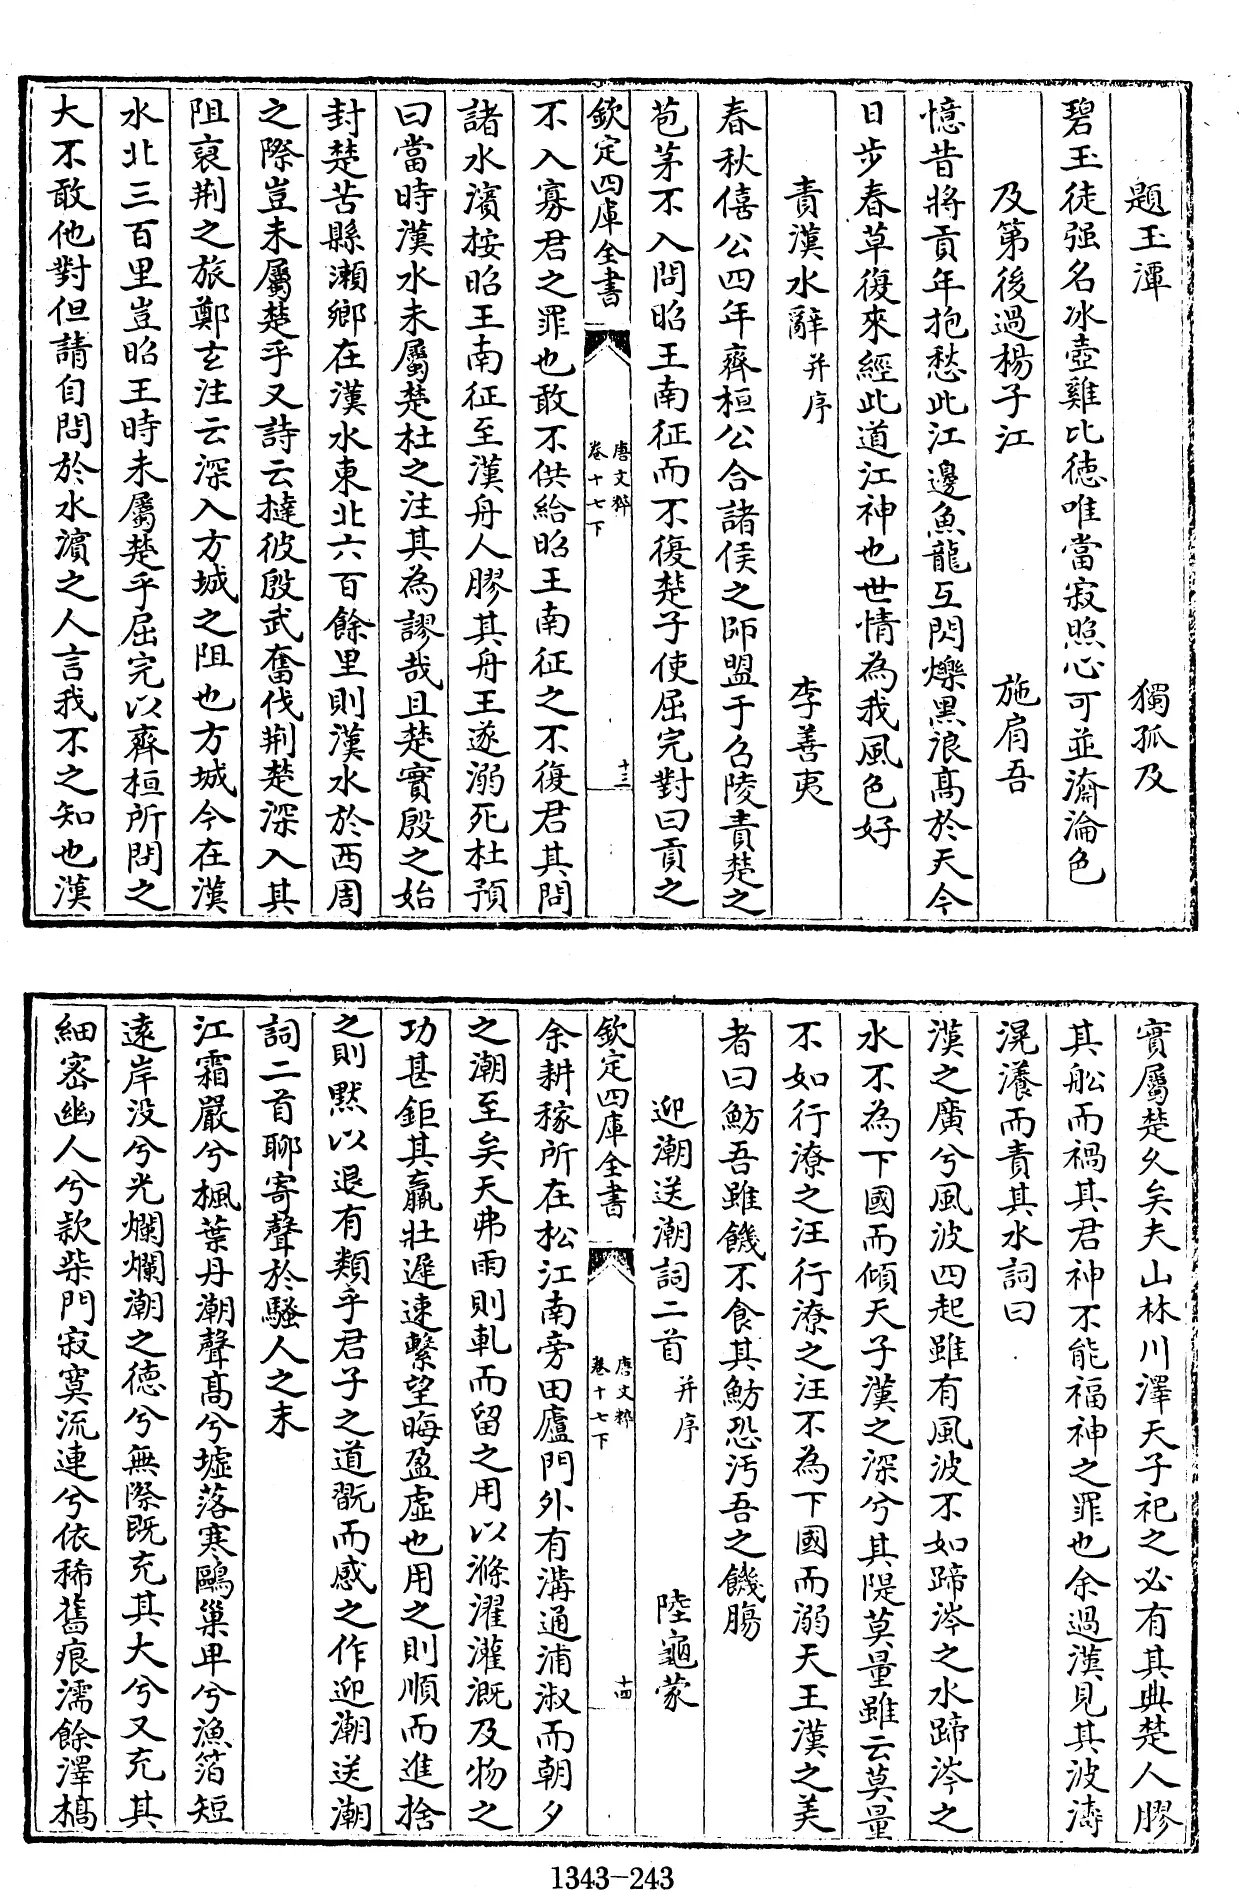 題玉潭　獨孤及
碧玉徒强名冰壺難比德唯當寂照心可並滴淪色
及第後過楊子江　施肩吾
憶昔將貢年抱愁此江邊魚龍互閃爍黒浪髙於天今
日步春草復來經此道江神也世情為我風色好
責漢水辭并序　李善夷
春秋僖公四年齊桓公合諸侯之師盟于召陵責楚之
苞茅不入問昭王南征而不復楚子使屈完對曰貢之
欽定四庫全書
唐文粹
卷十七下
十三
不入寡君之罪也敢不供給昭王南征之不復君其問
諸水濱按昭王南征至漢舟人膠其舟王遂溺死杜預
曰當時漢水未屬楚杜之注其為謬哉且楚實殷之始
封楚苦縣瀨鄉在漢水東北六百餘里則漢水於西周
之際豈未屬楚乎又詩云撻彼殷武奮伐荆楚深入其
阻裒荆之旅鄭玄注云深入方城之阻也方城今在漢
水北三百里豈昭王時未屬楚乎屈完以齊桓所問之
大不敢他對但請自問於水濵之人言我不之知也漢
實屬楚久矣夫山林川澤天子祀之必有其典楚人膠
其舩而禍其君神不能福神之罪也余過漢見其波濤
滉瀁而責其水詞曰
漢之廣兮風波四起雖有風波不如蹄涔之水蹄涔之
水不為下國而傾天子漢之深兮其隄莫量雖云莫量
不如行潦之汪行潦之汪不為下國而溺天王漢之美
者曰魴吾雖饑不食其魴恐汚吾之饑腸
迎潮送潮詞二首并序　陸龜蒙
欽定四庫全書
唐文粹
卷十七下
十四
余耕稼所在松江南旁田廬門外有溝通浦溆而朝夕
之潮至矣天弗雨則軋而留之用以滌濯灌溉及物之
功甚鉅其羸壯遲速繫望晦盈虛也用之則順而進捨
之則黙以退有類乎君子之道翫而感之作迎潮送潮
詞二首聊寄聲於騷人之末
江霜嚴兮楓葉丹潮聲髙兮墟落寒鷗巢卑兮漁箔短
逺岸没兮光爛爛潮之德兮無際既充其大兮又充其
細密幽人兮款柴門寂寞流連兮依稀舊痕濡餘澤槁
1343-243